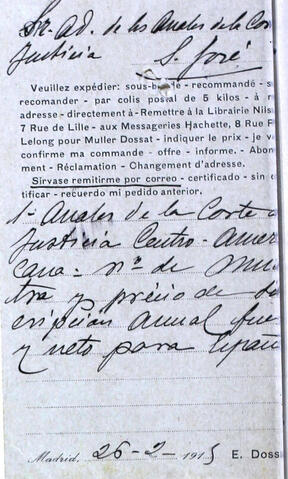 Sr. Ad. de los Anales de la Cort
Justicia S. José
Veuillez expédier: sous-bande - recommandé - s
recomander - par colis postal de 5 kilos - à
adresse - directement à - Remettre à la Librairie Nils
7 Rue de Lille - aux Messageries Hachette, 8 Rue P
Lelong pour Muller Dossat - indiquer le prix - je v
confirme ma commande - offre - informe. - Abon
ment - Réclamation - Changement d'adresse.
Sírvase remitirme por correo - certificado - sin c
tificar - recuerdo mi pedido anterior.
1 Anales de la Corte
Justicia Centro-Amer
cana = nº de mue
tra y précio de su
cripcion anual fue
y neto para Españ
Madrid, 26-2-1915 E. Doss